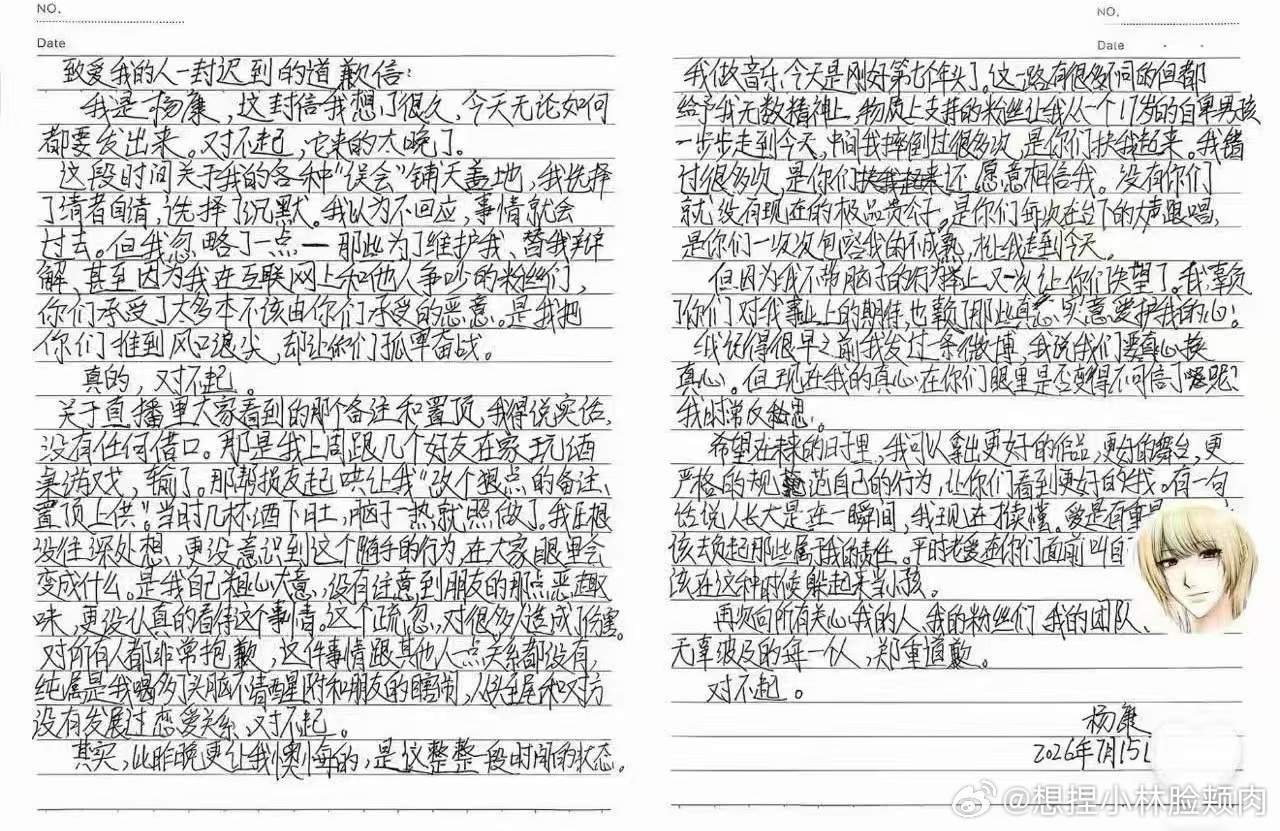 NO.
Date
致爱我的人一封迟到的道歉信:
我是杨康,这封信我想了很久,今天无论如何
都要发出来。对不起,它来的太晚了。
这段时间关于我的各种“误会”铺天盖地,我选择
了清者自清,选择了沉默。我以为不回应,事情就会
过去。但我忽略了一点—那些为了维护我、替我辩
解、甚至因为我在互联网上和他人争吵的粉丝们,
你们承受了太多本不该由你们承受的恶意。是我把
你们推到风口浪尖,却让你们孤军奋战。
真的,对不起。
关于直播里大家看到的那个备注和置顶,我得说实话,
没有任何借口。那是我上周跟几个好友在家玩酒
桌游戏,输了。那帮损友起哄让我“改个狠点的备注、
置顶上供”。当时几杯酒下肚,脑子一热就照做了。我压根
没往深处想,更没意识到这个随手的行为,在大家眼里会
变成什么。是我自己粗心大意,没有注意到朋友的那点恶趣
味,更没认真的看待这个事情。这个疏忽,对很多人造成了伤害。
对所有人都非常抱歉,这件事情跟其他人一点关系都没有,
纯属是我喝多了头脑不清醒附和朋友的瞎闹,从头至尾和对方
没有发展过恋爱关系、对不起。
其实,比昨晚更让我懊悔的,是这整整一段时间的状态。
NO.
Date
我做音乐,今天是刚好第七个年头了。这一路有很多不同的但都
给予我无数精神上、物质上支持的粉丝让我从一个17岁的自卑男孩
一步步走到今天,中间我摔倒过很多次,是你们扶我起来。我错
过很多次,是你们还愿意相信我。没有你们
就没有现在的极品贵公子。是你们每次在台下的大声跟唱,
是你们一次次包容我的不成熟,让我走到今天。
但因为我不带脑子的行为举止又一次让你们失望了。我辜负
了你们对我事业上的期待,也辜负了那些真心实意爱护我的心!
我记得很早之前我发过一条微博,我说我们要真心换
真心。但现在我的真心在你们眼里是否变得不可信了呢?
我时常反思。
希望在未来的日子里,我可以拿出更好的作品,更好的舞台,更
严格的规范自己的行为,让你们看到更好的我。有一句
话说人长大是在一瞬间,我现在才读懂。爱是有重量
该去负起那些属于我的责任。平时老爱在你们面前叫自
该在这种时候躲起来当小孩。
再次向所有关心我的人、我的粉丝们、我的团队、
无辜波及的每一个人,郑重道歉。
对不起。
杨康
2026年7月15日
@想捏小林脸颊肉